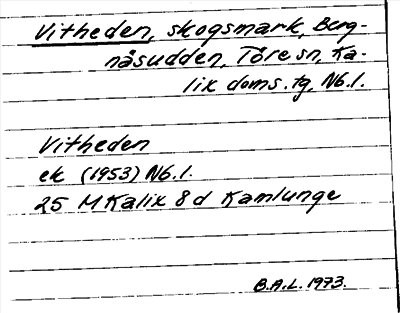 Vitheden, skogsmark, Berg-
näsudden, Töre sn, Ka-
lix doms. tg, Nb.l.
Vitheden
ek (1953) Nb.l.
25 M Kalix 8 d Kamlunge
B.A.L. 1973.